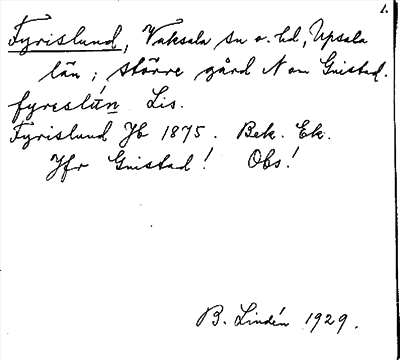 1.
Fyrislund, Vaksala sn o. hd, Upsala
län; större gård N om Gnistad.
fyreslún Lis.
Fyrislund Jb 1875. Bek. Ek.
Jfr Gnistad! Obs!
B. Lindén 1929.